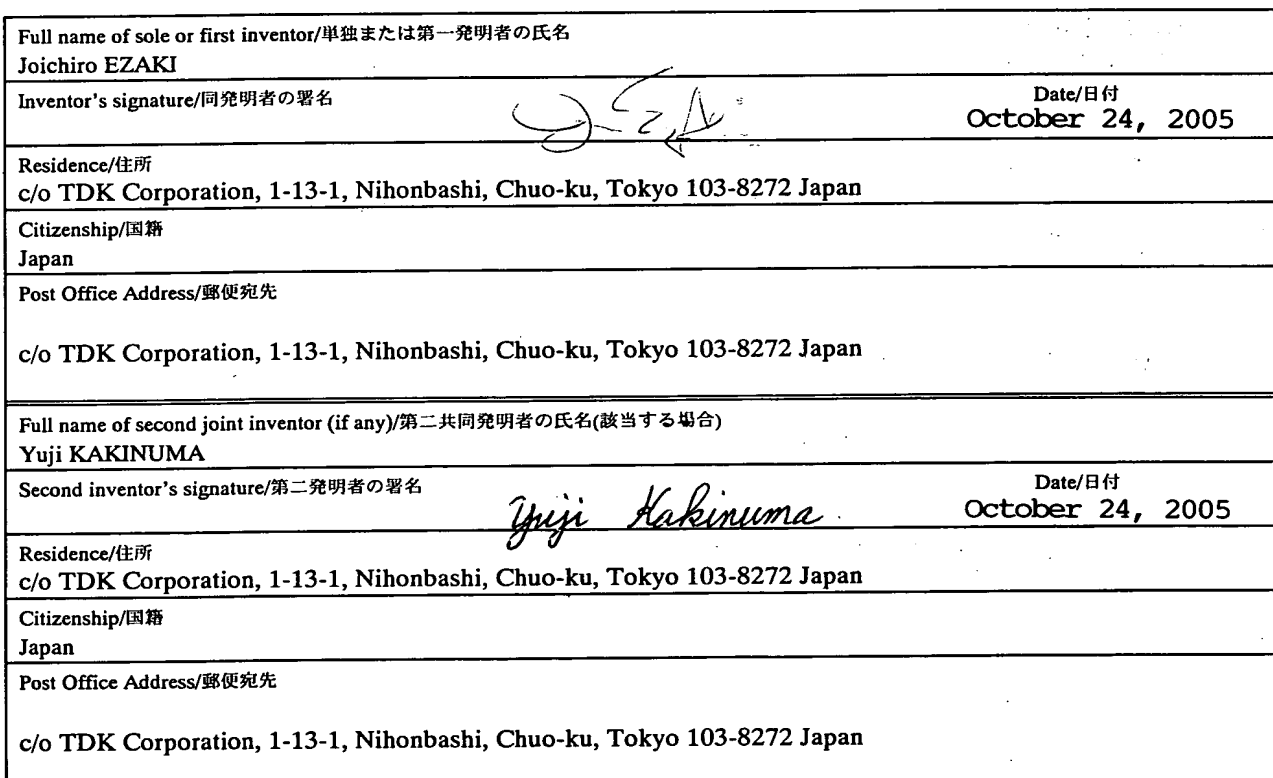 Full name of sole or first inventor/単独または第一発明者の氏名
Joichiro EZAKI
Inventor's signature/同発明者の署名
Date/日付
October 24, 2005
Residence/住所
c/o TDK Corporation, 1-13-1, Nihonbashi, Chuo-ku, Tokyo 103-8272 Japan
Citizenship/国籍
Japan
Post Office Address/郵便宛先
c/o TDK Corporation, 1-13-1, Nihonbashi, Chuo-ku, Tokyo 103-8272 Japan
Full name of second joint inventor (if any)/第二共同発明者の氏名(該当する場合)
Yuji KAKINUMA
Second inventor's signature/第二発明者の署名
Yuji Kakinuma
Date/日付
October 24, 2005
Residence/住所
c/o TDK Corporation, 1-13-1, Nihonbashi, Chuo-ku, Tokyo 103-8272 Japan
Citizenship/国籍
Japan
Post Office Address/郵便宛先
c/o TDK Corporation, 1-13-1, Nihonbashi, Chuo-ku, Tokyo 103-8272 Japan